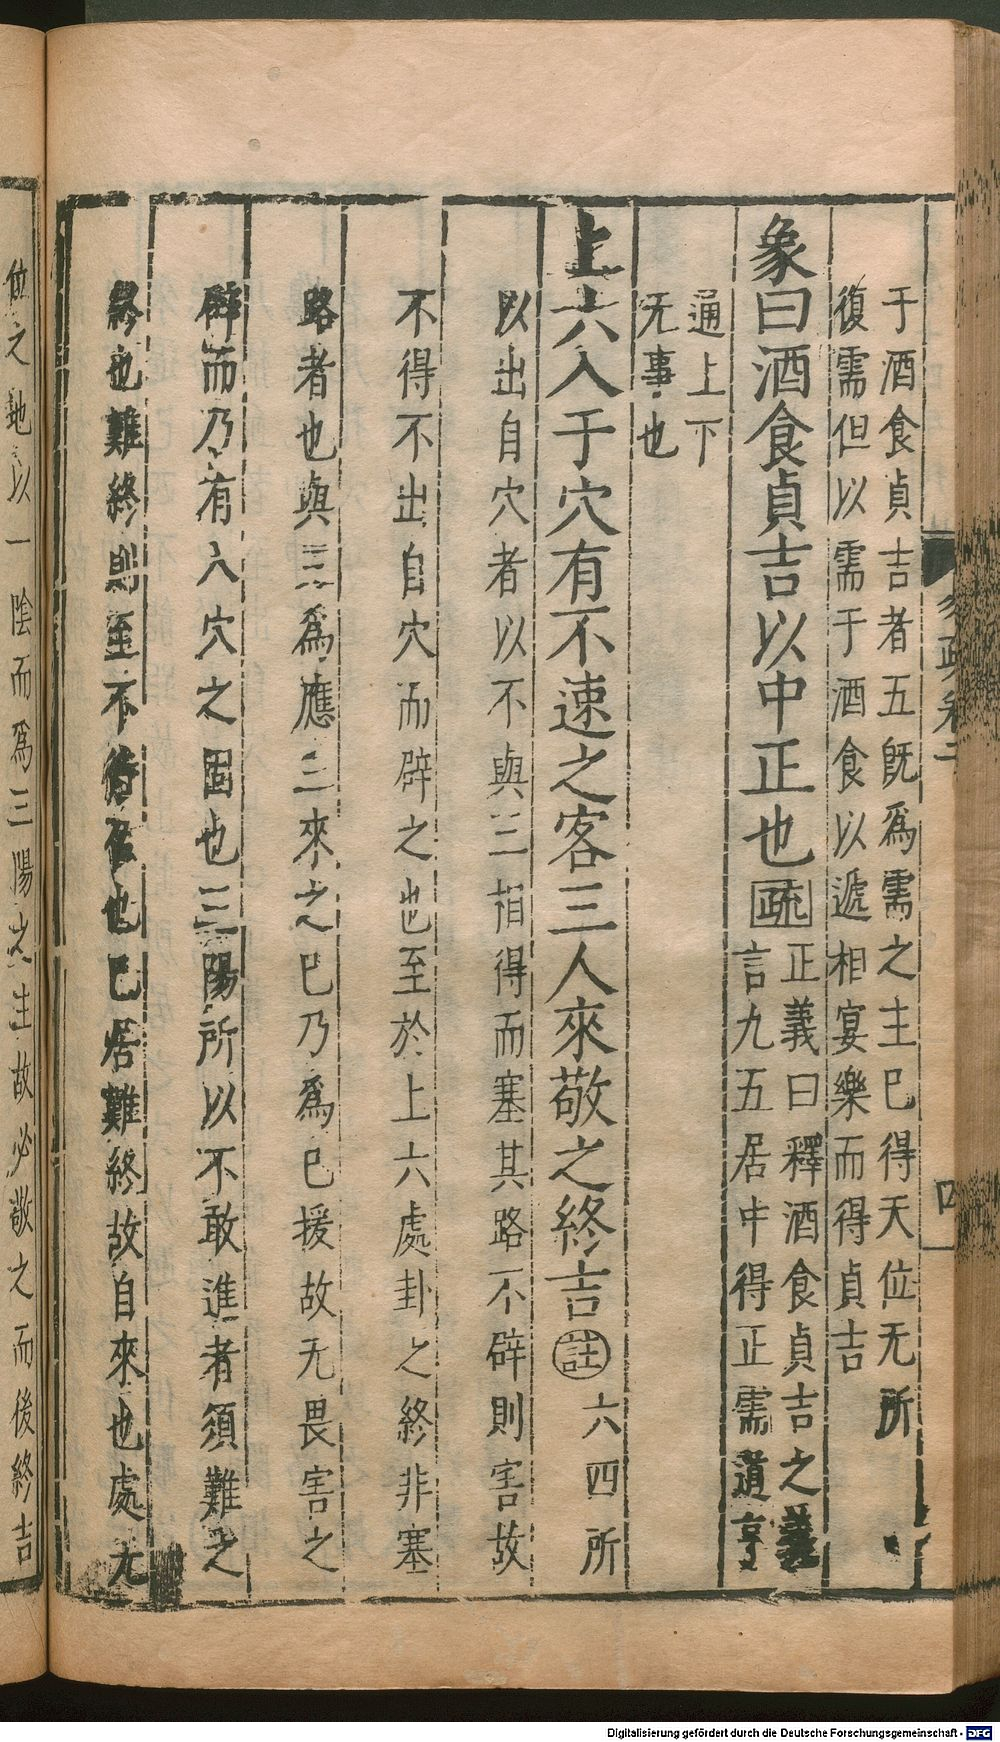 于酒食貞吉者五旣爲需之主已得天位无所
復需但以需于酒食以遞相宴樂而得貞吉
象曰酒食貞吉以中正也疏正義曰釋酒食貞吉之義
言九五居中得正需道亨
通上下
无事也
上六入于穴有不速之客三人來敬之終吉註六四所
以出自穴者以不與三相得而塞其路不辟則害故
不得不出自穴而辟之也至於上六處卦之終非塞
路者也與三爲應三來之巳乃爲巳援故无畏害之
辟而乃有入穴之固也三陽所以不敢進者須難之
終也難終則至不待召也巳居難終故自來也處无
位之地以一陰而爲三陽之主故必敬之而後終吉
易疏卷二
四
Digitalisierung gefördert durch die Deutsche Forschungsgemeinschaft - DFG